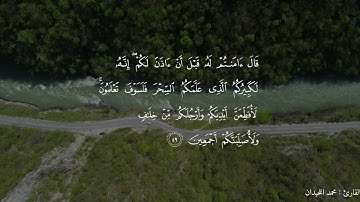 قَالَ ءَامَنتُمْ لَهُۥ قَبْلَ أَنْ ءَاذَنَ لَكُمْ ۖ إِنَّهُۥ
لَكَبِيرُكُمُ ٱلَّذِى عَلَّمَكُمُ ٱلسِّحْرَ فَلَسَوْفَ تَعْلَمُونَ ۚ
لَأُقَطِّعَنَّ أَيْدِيَكُمْ وَأَرْجُلَكُم مِّنْ خِلَـٰفٍ
وَلَأُصَلِّبَنَّكُمْ أَجْمَعِينَ ٤٩
القارئ : محمد اللحيدان